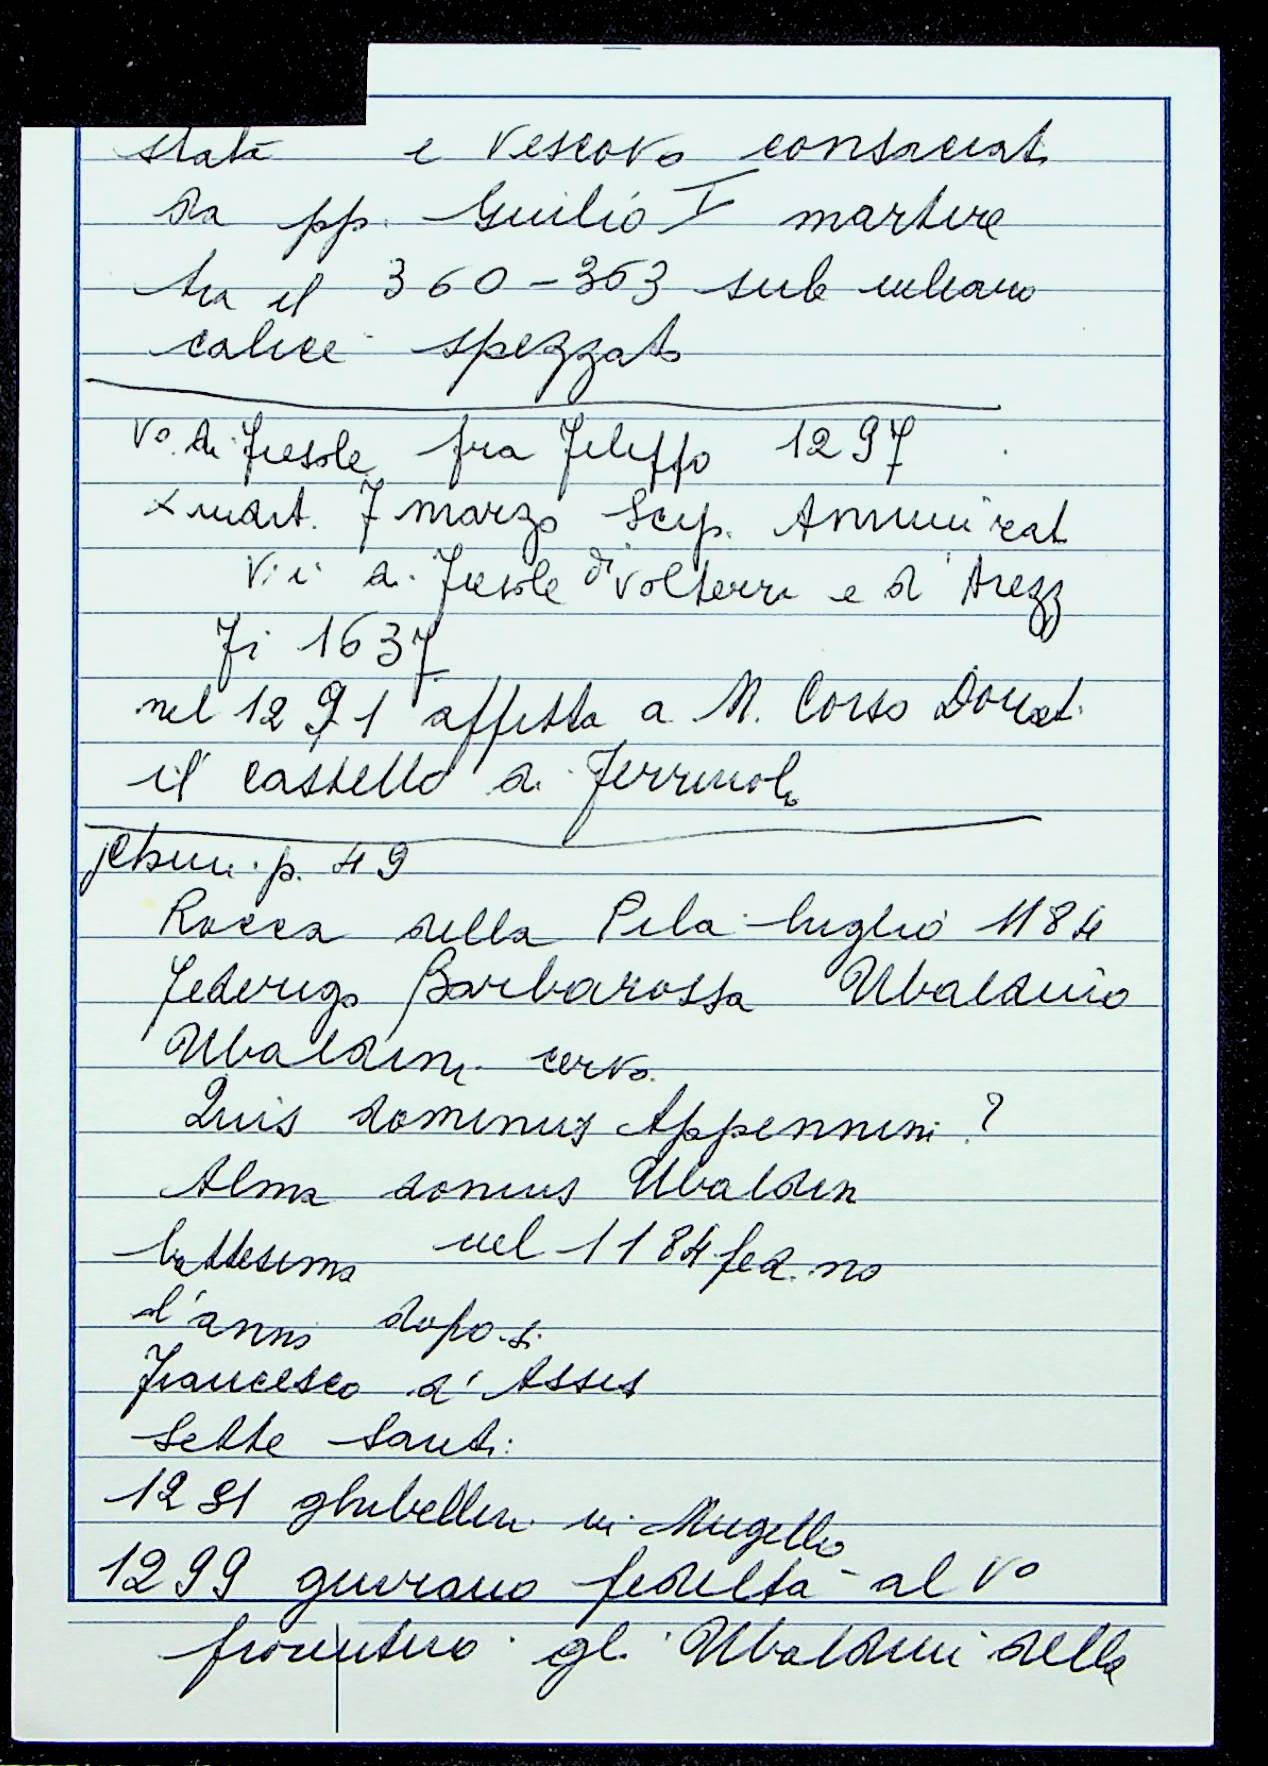 stata e vescovo consacrat.
da pp. Guilio I martire
tra il 360-363 sub
calice spezzato
Vo. di Fiesole fra Filippo 1297
7 marzo Scip. Ammirat
V.i di Fiesole di Volterra e d'Arezz
Fi 1637
nel 1291 affitta a M. Corso Donat.
il castello di
p. 49
Rocca della Pila luglio 1184
Federigo Barbarossa Ubaldino
Ubaldini cervo.
Quis dominus Appennini?
Alma domus Ubaldin
battesimo nel 1184 fed. no
l'anno dopo. s.
Francesco d'Assis
Sette Santi:
1281 ghibellin. in Mugello
1299 giurano fedeltà al Vo
fiorentino gli Ubaldini della